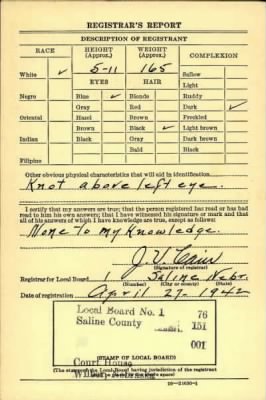 REGISTRAR'S REPORT
DESCRIPTION OF REGISTRANT
RACE HEIGHT (Approx.) WEIGHT (Approx.) COMPLEXION
White ✓ 5-11 165 Sallow
EYES HAIR Light
Negro Blue ✓ Blonde Ruddy
Gray Red Dark ✓
Oriental Hazel Brown Freckled
Brown Black ✓ Light brown
Indian Black Gray Dark brown
Bald Black
Filipino
Other obvious physical characteristics that will aid in identification
Knot above left eye.
I certify that my answers are true; that the person registered has read or has had
read to him his own answers; that I have witnessed his signature or mark and that
all of his answers of which I have knowledge are true, except as follows:
None to my knowledge.
J. V.
(Signature of registrar)
Registrar for Local Board 1 Saline Nebr.
(Number) (City or county) (State)
Date of registration April 27-1942
Local Board No. 1 76
Saline County 151
001
Court House
(STAMP OF LOCAL BOARD)
(The stamp of the Local Board having jurisdiction of the registrant
shall be placed in the above space)
16—21630-1